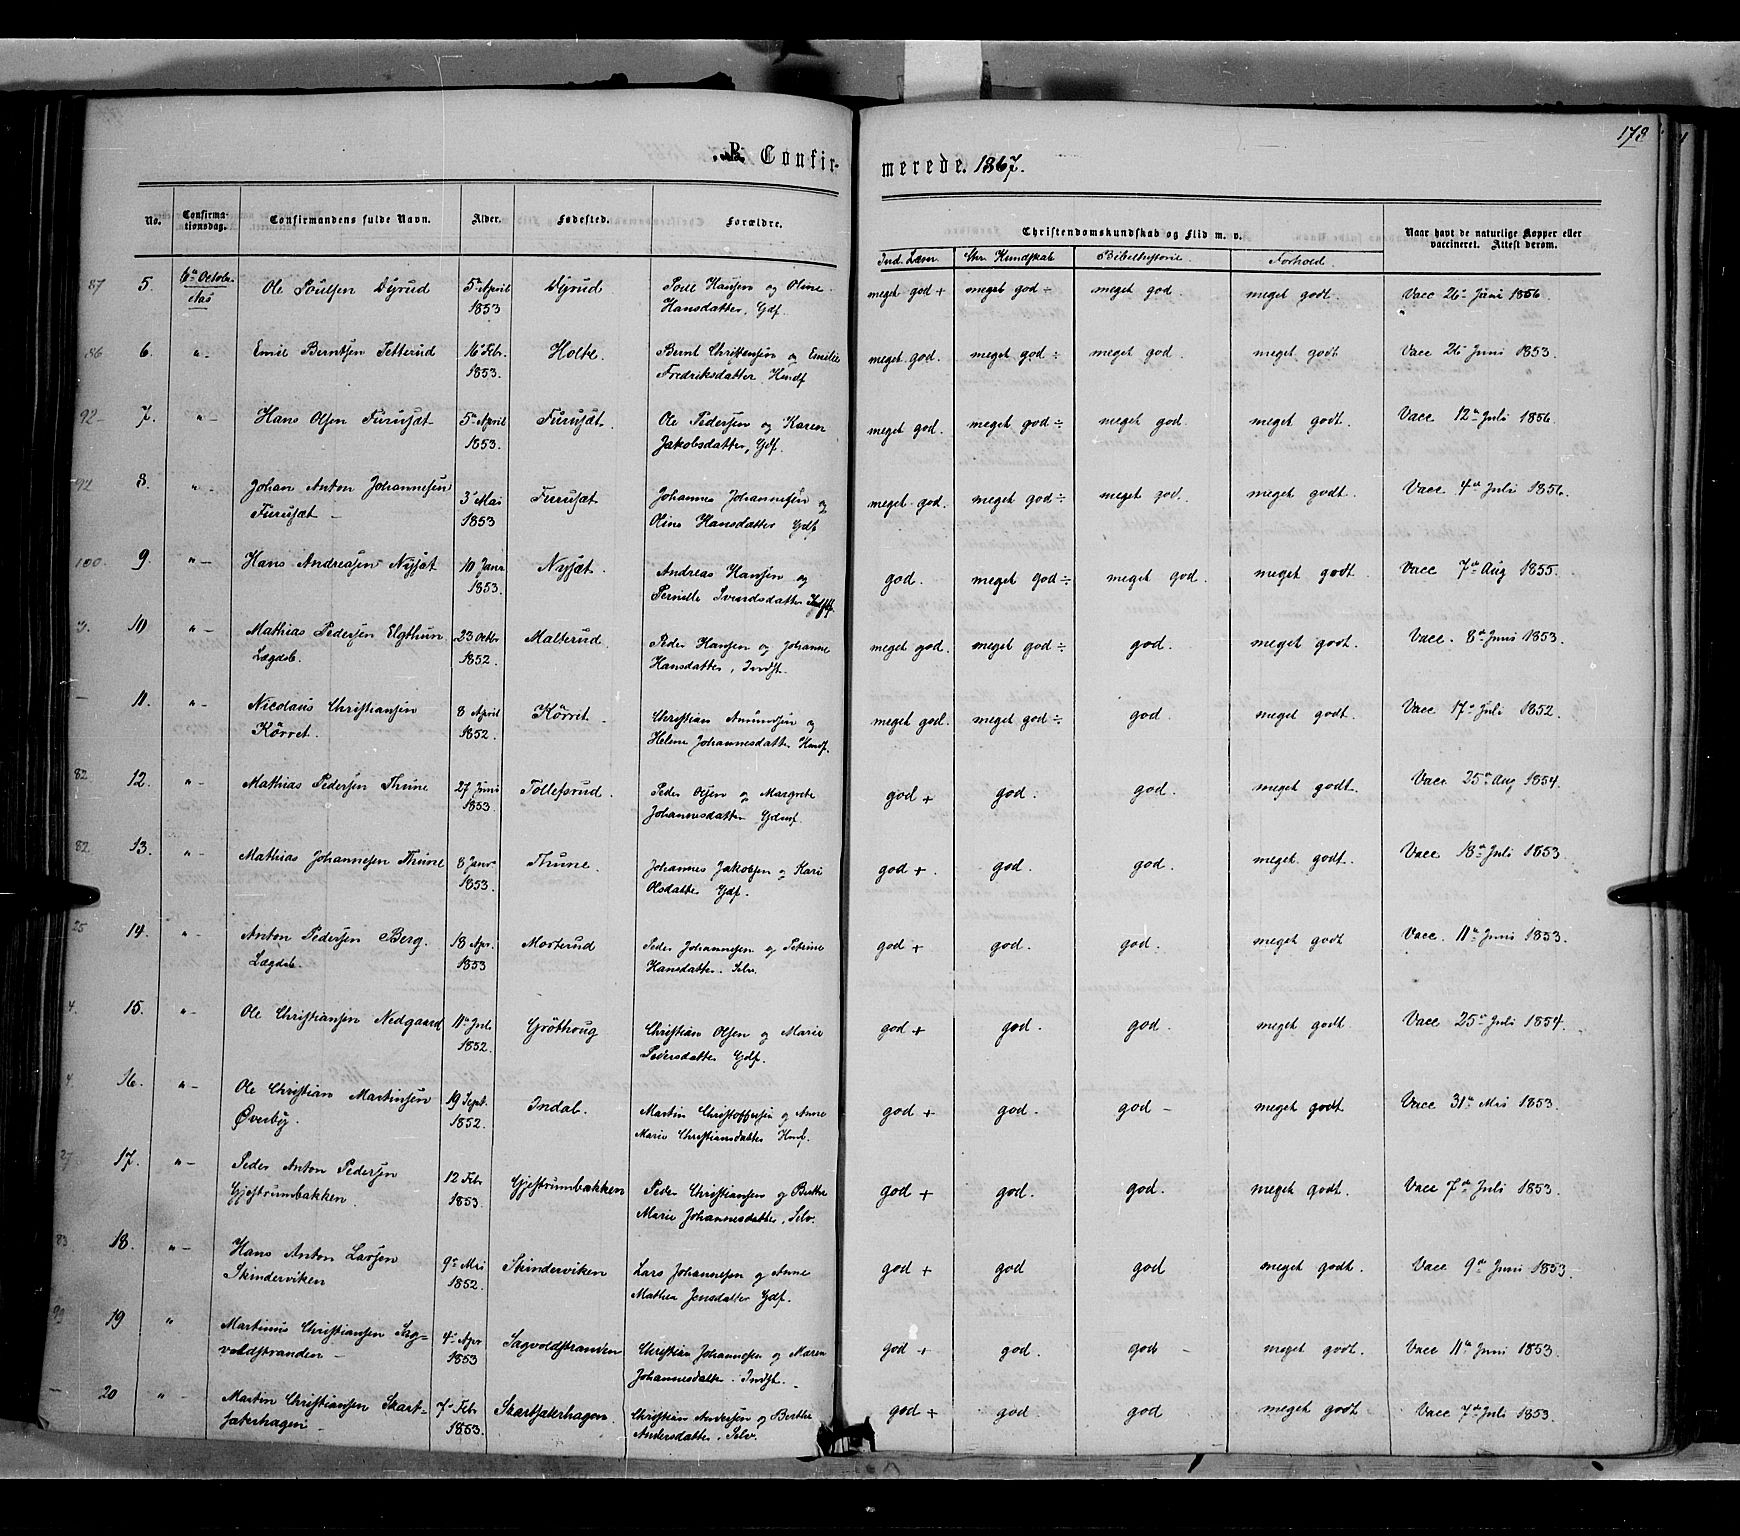 178
B. Confir-
merede. 1867.
No.
Confirma-
tionsdag.
Confirmandens fulde Navn.
Alder.
Fødested.
Forældre.
Christendomskundskab og Flid m. v.
Naar havt de naturlige Kopper eller
vaccineret. Attest derom.
Ind. Læsn.
Chr. Kundskab
Bibelhistorie
Forhold.
87 5. 6te Octobr. Ole Poulsen Dyrud 5te April Dyrud Poul Hansen og Oline meget god + meget god ÷ meget god meget godt. Vacc 26 Juni 1856.
Aas 1853 Hansdatter, Gdf.
86 6. " Emil Berntsen Tetterud 16 Febr. Holte. Bernt Christensen og Emilie meget god. meget god ÷ meget god. meget godt Vacc 26 Juni 1853.
1853. Fredriksdatter Husf
92 7. " Hans Olsen Furusæt 5te April Furusæt. Ole Pedersen og Karen meget god. meget god ÷ meget god. meget godt. Vacc 12te Juli 1856.
1853. Jakobsdatter, Gdf.
92 8. " Johan Anton Johannesen 3 Mai Furusæt Johannes Johannesen og meget god. meget god ÷ meget god. meget godt. Vacc 4de Juli 1856.
Furusæt – 1853 Oline Hansdatter Gdf
100. 9 " Hans Andreasen Nysæt 10 Janr Nysæt. Andreas Hansen og god. meget god ÷ meget god. meget godt Vacc 7de Aug 1855.
1853. Pernille Svendsdatter
3. 10 " Mathias Pedersen Elgthun 23 Octbr Malterud Peder Hansen og Johanne meget god. meget god ÷ god. meget godt. Vacc. 8de Juni 1853.
Lægdsb. 1852. Hansdatter, Indst.
11. " Nicolaus Christiansen 8 April Körret Christian Amundsen og meget god. meget god ÷ god meget godt. Vacc 17de Juli 1852.
Körret. 1852. Helene Johannesdatter Husf.
82 12. " Mathias Pedersen Thune 27 Juni Tollefsrud. Peder Olsen og Margrete god + god. god. meget godt. Vacc 25de Aug 1854.
1853 Johannesdatter Gdmf.
82 13. " Mathias Johannesen Thune 8 Janr Thune. Johannes Jakobsen og Kari god +. god. god. meget godt. Vacc 18de Juli 1853.
1853. Olsdatter Gdf.
25 14. " Anton Pedersen Berg. 18 Apr. Morterud Peder Johannesen og Petrine god + god. god. meget godt Vacc. 11te Juni 1853.
Lægdsb. 1853 Hansdatter. Selv.
4. 15. " Ole Christiansen Nedgaard 11te Juli Gröthoug Christian Olsen og Marie god + god. god. meget godt. Vacc 25de Juli 1854.
1852. Pedersdatter Gdf.
4. 16. " Ole Christian Martinsen 19 Sept. Indal. Martin Christoffersen og Anne god + god. god – meget godt Vacc 31te Mai 1853.
Øverby. 1852. Marie Christiansdatter Husf.
27 17. " Peder Anton Pedersen 12 Febr Gjestrumbakken Peder Christiansen og Berthe god + god. god. meget godt. Vacc 7de Juli 1853.
Gjestrumbakken. 1853. Marie Johannesdatter, Selv.
83 18. " Hans Anton Larsen 9de Mai Skinderviken Lars Johannesen og Anne god + god god meget godt. Vacc 9de Juni 1853.
Skinderviken 1852. Mathea Jensdatter Gdf.
99 19 " Martinus Christiansen Sag= 4de Apr Sagvoldstranden Christian Johannesen og Maren god + god. god – meget godt. Vacc 11te Juni 1853.
voldstranden – 1853 Johannesdatter. Indst.
20 " Martin Christiansen Skart= 7de Febr Skartsæterhagen. Christian Andersen og Berthe god + god god meget godt Vacc 7de Juli 1853.
sæterhagen – 1853. Andersdatter. Selv.